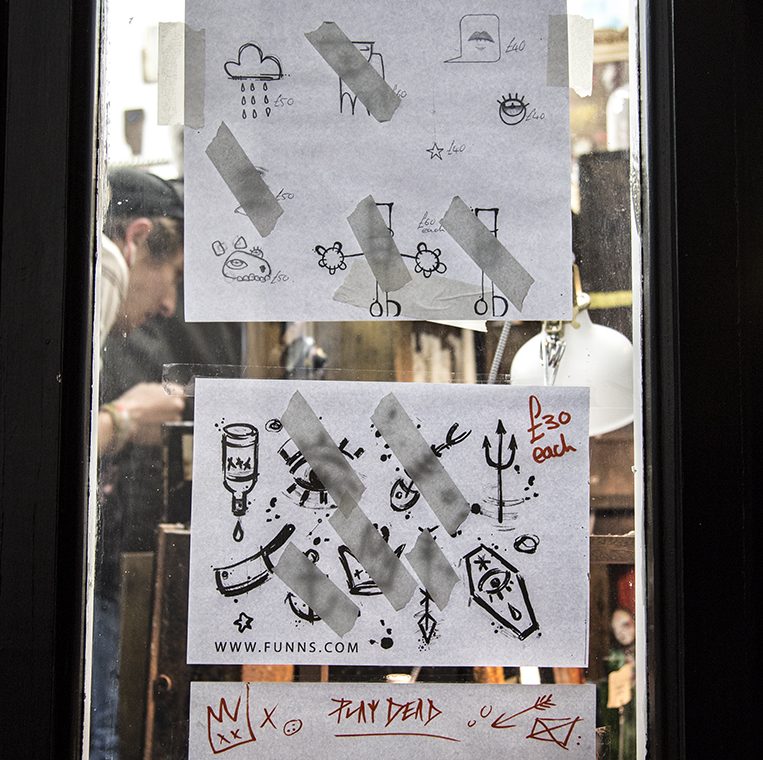 £40
£50
£40
£40
£50
£60
each
£50
£30
each
XXX
WWW.FUNNS.COM
XX X PLAY DEAD